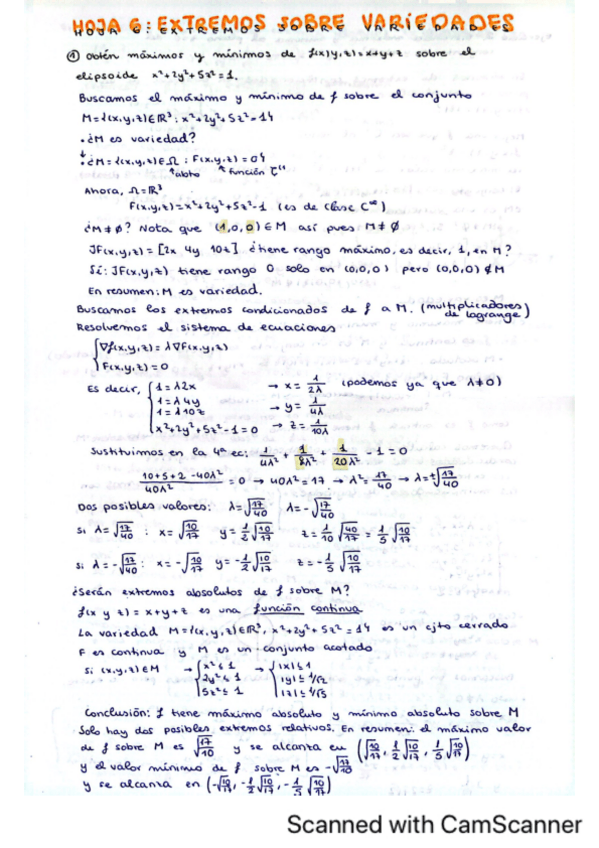 HOJA 6: EXTREMOS SOBRE VARIEDADES
① Obtén máximos y mínimos de f(x,y,z)=x+y+z sobre el
elipsoide x²+2y²+5z²=1.
Buscamos el máximo y mínimo de f sobre el conjunto
M={(x,y,z)∈ℝ³: x²+2y²+5z²=1}
• ¿M es variedad?
↓
• ¿M={(x,y,z)∈Ω : F(x,y,z)=0}
↑abto ↑función C¹
Ahora, Ω=ℝ³
F(x,y,z)=x²+2y²+5z²-1 (es de clase C^∞)
¿M≠∅? Nota que (1,0,0)∈M así pues M≠∅
JF(x,y,z)=[2x 4y 10z] ¿tiene rango máximo, es decir, 1, en M?
Sí: JF(x,y,z) tiene rango 0 solo en (0,0,0) pero (0,0,0)∉M
En resumen: M es variedad.
Buscamos los extremos condicionados de f a M. (multiplicadores de lagrange)
Resolvemos el sistema de ecuaciones
{∇f(x,y,z)=λ∇F(x,y,z)
{F(x,y,z)=0
Es decir, {1=λ2x → x=1/2λ (podemos ya que λ≠0)
{1=λ4y → y=1/4λ
{1=λ10z → z=1/10λ
{x²+2y²+5z²-1=0
Sustituimos en la 4ª ec: 1/4λ² + 1/8λ² + 1/20λ² -1=0
10+5+2-40λ²/40λ² =0 → 40λ²=17 → λ²=17/40 → λ=±√17/40
Dos posibles valores: λ=√17/40 λ=-√17/40
si λ=√17/40 : x=√10/17 y=1/2√10/17 z=1/10√40/17 = 1/5√10/17
si λ=-√17/40: x=-√10/17 y=-1/2√10/17 z=-1/5√10/17
¿Serán extremos absolutos de f sobre M?
f(x y z)=x+y+z es una función continua
La variedad M={(x,y,z)∈ℝ³, x²+2y²+5z²=1} es un cjto cerrado
F es continua y M es un conjunto acotado
Si (x,y,z)∈M → {x²≤1 → {|x|≤1
{2y²≤1 |y|≤1/√2
{5z²≤1 |z|≤1/√5
Conclusión: f tiene máximo absoluto y mínimo absoluto sobre M
Solo hay dos posibles extremos relativos. En resumen: el máximo valor
de f sobre M es √17/10 y se alcanta en (√10/17, 1/2√10/17, 1/5√10/17)
y el valor mínimo de f sobre M es -√17/10
y se alcanza en (-√10/17, -1/2√10/17, -1/5√10/17)
Scanned with CamScanner